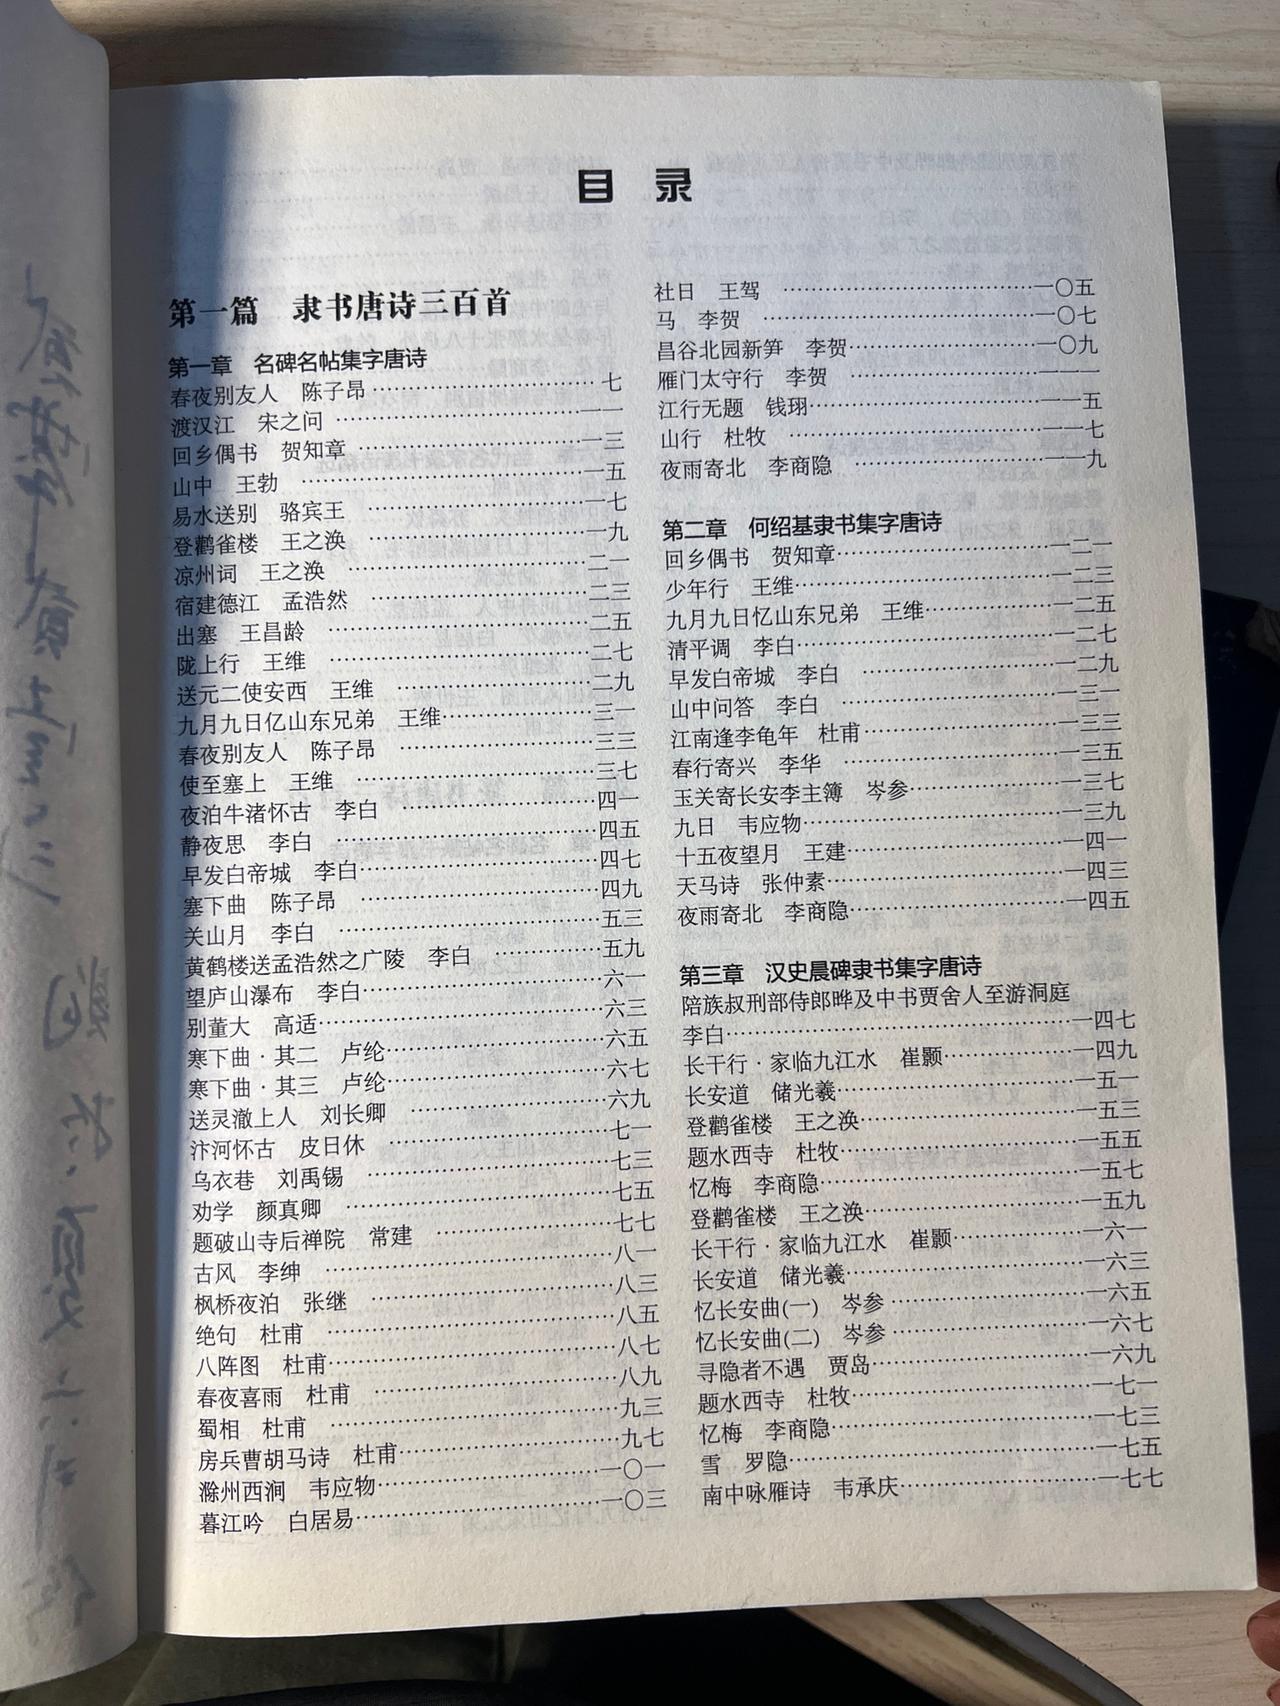 目 录
第一篇 隶书唐诗三百首
第一章 名碑名帖集字唐诗
春夜别友人 陈子昂……七
渡汉江 宋之问……一一
回乡偶书 贺知章……一三
山中 王勃……一五
易水送别 骆宾王……一七
登鹳雀楼 王之涣……一九
凉州词 王之涣……二一
宿建德江 孟浩然……二三
出塞 王昌龄……二五
陇上行 王维……二七
送元二使安西 王维……二九
九月九日亿山东兄弟 王维……三一
春夜别友人 陈子昂……三三
使至塞上 王维……三七
夜泊牛渚怀古 李白……四一
静夜思 李白……四五
早发白帝城 李白……四七
塞下曲 陈子昂……四九
关山月 李白……五三
黄鹤楼送孟浩然之广陵 李白……五九
望庐山瀑布 李白……六一
别董大 高适……六三
寒下曲·其二 卢纶……六五
寒下曲·其三 卢纶……六七
送灵澈上人 刘长卿……六九
汴河怀古 皮日休……七一
乌衣巷 刘禹锡……七三
劝学 颜真卿……七五
题破山寺后禅院 常建……七七
古风 李绅……八一
枫桥夜泊 张继……八三
绝句 杜甫……八五
八阵图 杜甫……八七
春夜喜雨 杜甫……八九
蜀相 杜甫……九三
房兵曹胡马诗 杜甫……九七
滁州西涧 韦应物……一〇一
暮江吟 白居易……一〇三
社日 王驾……一〇五
马 李贺……一〇七
昌谷北园新笋 李贺……一〇九
雁门太守行 李贺……一一一
江行无题 钱珝……一一五
山行 杜牧……一一七
夜雨寄北 李商隐……一一九
第二章 何绍基隶书集字唐诗
回乡偶书 贺知章……一二一
少年行 王维……一二三
九月九日忆山东兄弟 王维……一二五
清平调 李白……一二七
早发白帝城 李白……一二九
山中问答 李白……一三一
江南逢李龟年 杜甫……一三三
春行寄兴 李华……一三五
玉关寄长安李主簿 岑参……一三七
九日 韦应物……一三九
十五夜望月 王建……一四一
天马诗 张仲素……一四三
夜雨寄北 李商隐……一四五
第三章 汉史晨碑隶书集字唐诗
陪族叔刑部侍郎晔及中书贾舍人至游洞庭
李白……一四七
长干行·家临九江水 崔颢……一四九
长安道 储光羲……一五一
登鹳雀楼 王之涣……一五三
题水西寺 杜牧……一五五
忆梅 李商隐……一五七
登鹳雀楼 王之涣……一五九
长干行·家临九江水 崔颢……一六一
长安道 储光羲……一六三
忆长安曲(一) 岑参……一六五
忆长安曲(二) 岑参……一六七
寻隐者不遇 贾岛……一六九
题水西寺 杜牧……一七一
忆梅 李商隐……一七三
雪 罗隐……一七五
南中咏雁诗 韦承庆……一七七